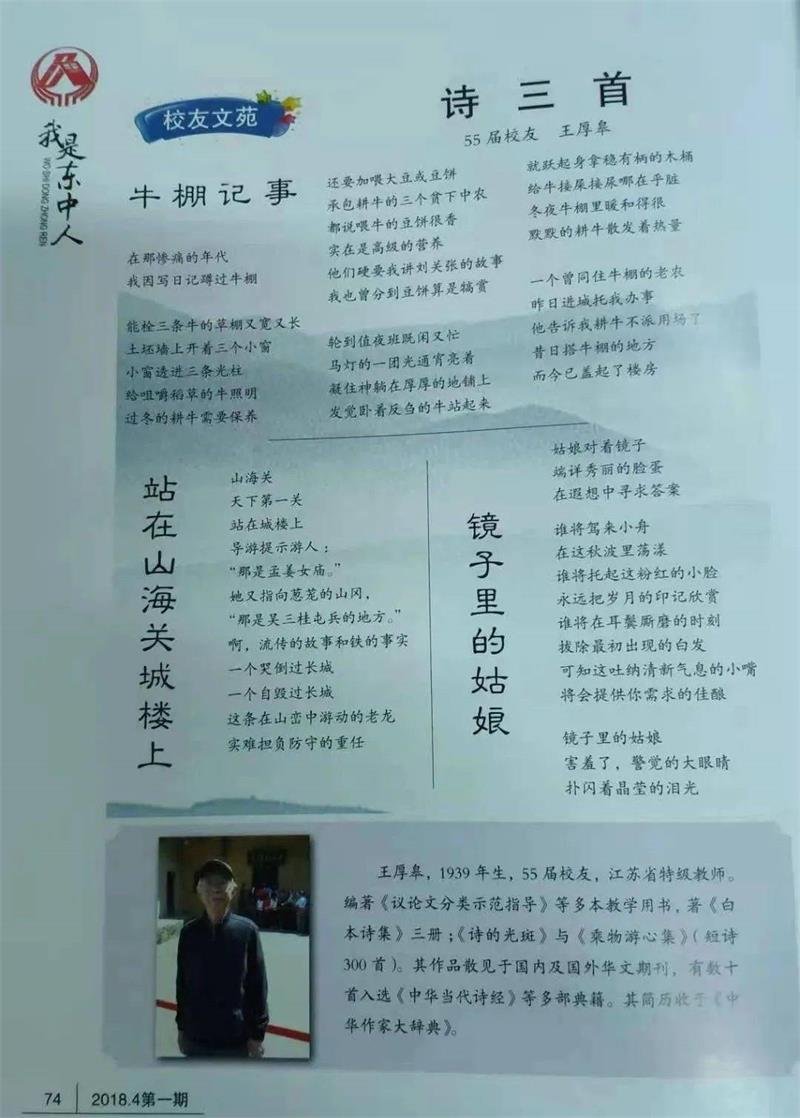 我是东中人
WO SHI DONG ZHONG REN
校友文苑
诗三首
55届校友 王厚皋
牛棚记事
在那惨痛的年代
我因写日记蹲过牛棚
能栓三条牛的草棚又宽又长
土坯墙上开着三个小窗
小窗透进三条光柱
给咀嚼稻草的牛照明
过冬的耕牛需要保养
还要加喂大豆或豆饼
承包耕牛的三个贫下中农
都说喂牛的豆饼很香
实在是高级的营养
他们硬要我讲刘关张的故事
我也曾分到豆饼算是犒赏
轮到值夜班既闲又忙
马灯的一团光通宵亮着
凝住神躺在厚厚的地铺上
发觉卧着反刍的牛站起来
就跃起身拿稳有柄的木桶
给牛接屎接尿哪在乎脏
冬夜牛棚里暖和得很
默默的耕牛散发着热量
一个曾同住牛棚的老农
昨日进城托我办事
他告诉我耕牛不派用场了
昔日搭牛棚的地方
而今已盖起了楼房
站在山海关城楼上
山海关
天下第一关
站在城楼上
导游提示游人：
“那是孟姜女庙。”
她又指向葱茏的山冈，
“那是吴三桂屯兵的地方。”
啊，流传的故事和铁的事实
一个哭倒过长城
一个自毁过长城
这条在山峦中游动的老龙
实难担负防守的重任
镜子里的姑娘
姑娘对着镜子
端详秀丽的脸蛋
在遐想中寻求答案
谁将驾来小舟
在这秋波里荡漾
谁将托起这粉红的小脸
永远把岁月的印记欣赏
谁将在耳鬓厮磨的时刻
拔除最初出现的白发
可知这吐纳清新气息的小嘴
将会提供你需求的佳酿
镜子里的姑娘
害羞了，警觉的大眼睛
扑闪着晶莹的泪光
王厚皋，1939年生，55届校友，江苏省特级教师。
编著《议论文分类示范指导》等多本教学用书，著《白
本诗集》三册；《诗的光斑》与《乘物游心集》（短诗
300首）。其作品散见于国内及国外华文期刊，有数十
首入选《中华当代诗经》等多部典籍。其简历收于《中
华作家大辞典》。
74
2018.4第一期